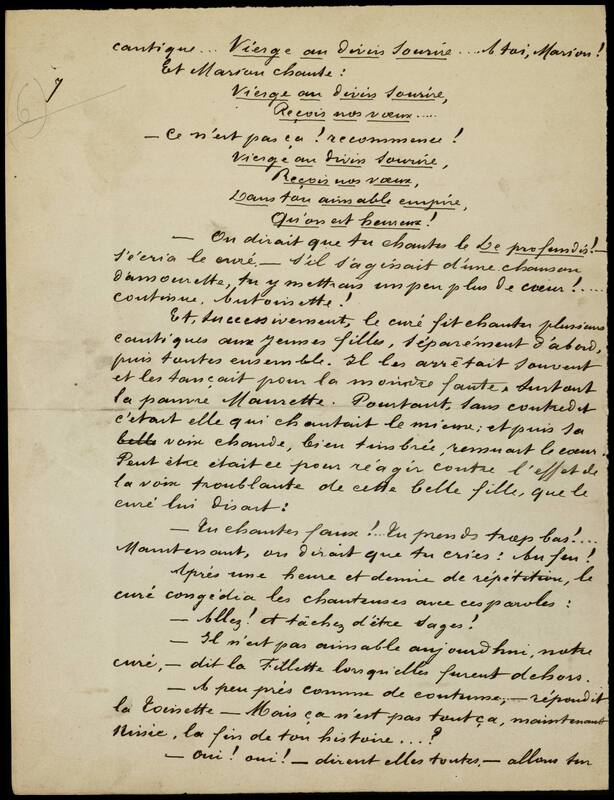 cantique... Vierge au divin sourire... A toi, Marion!
7
6
Et Marion chante:
Vierge au divin sourire,
Reçois nos vœux.....
— Ce n'est pas ça! recommence!
Vierge au divin sourire,
Reçois nos vœux,
Dans ton aimable empire,
Qu'on est heureux!
— On dirait que tu chantes le De profundis! —
s'écria le curé. — S'il s'agissait d'une chanson
d'amourette, tu y mettrais un peu plus de cœur!....
continue, Antoinette!
Et, successivement, le curé fit chanter plusieurs
cantiques aux jeunes filles, séparément d'abord,
puis toutes ensemble. Il les arrêtait souvent
et les tançait pour la moindre faute, surtout
la pauvre Maurette. Pourtant, sans contredit
c'était elle qui chantait le mieux; et puis sa
belle voix chaude, bien timbrée, remuait le cœur.
Peut être était ce pour réagir contre l'effet de
la voix troublante de cette belle fille, que le
curé lui disait:
— Tu chantes faux!.. Tu prends trop bas!...
Maintenant, on dirait que tu cries: Au feu!
Après une heure et demie de répétition, le
curé congédia les chanteuses avec ces paroles:
— Allez! et tâchez d'être sages!
— Il n'est pas aimable aujourd'hui, notre
curé, — dit la Fillette lorsqu'elles furent dehors.
— A peu près comme de coutume, — répondit
la Toisette — Mais ça n'est pas tout ça, maintenant
Missie, la fin de ton histoire....?
— Oui! oui! — dirent elles toutes. — allons sur